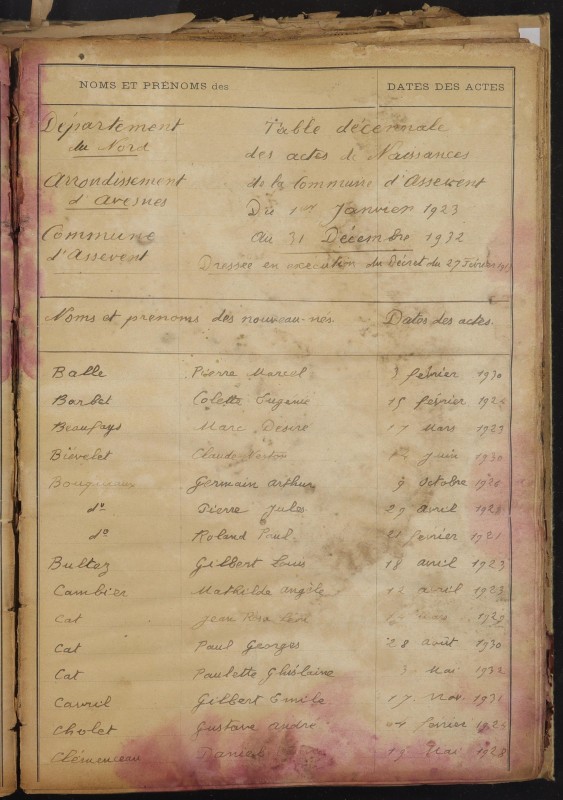 NOMS ET PRÉNOMS des DATES DES ACTES
Département Table décennale
du Nord des actes de Naissances
Arrondissement de la Commune d'Assevent
d'Avesnes Du 1er Janvier 1923
Commune Au 31 Décembre 1932
d'Assevent Dressée en exécution du Décret du 27 Février
Noms et prénoms des nouveau-nés. Dates des actes.
Balle Pierre Marcel 3 février 1930
Barbet Colette Eugenie 15 février
Beaufays Marc Désiré 17 Mars 1923
Biévelet Claude Juin 1930
Germain Arthur 9 Octobre
do Pierre Jules 29 Avril
do Roland Paul février
Bultez Gilbert Louis 18 avril 1923
Cambier Mathilde Angèle 12 avril 1923
Cat Jean
Cat Paul Georges 28 Août 1930
Cat Paulette Ghislaine 3 Mai 1932
Cavril Gilbert Emile 17 Nov. 1931
Cholet Gustave André février
Clémenceau Daniel 19 Mai 1928